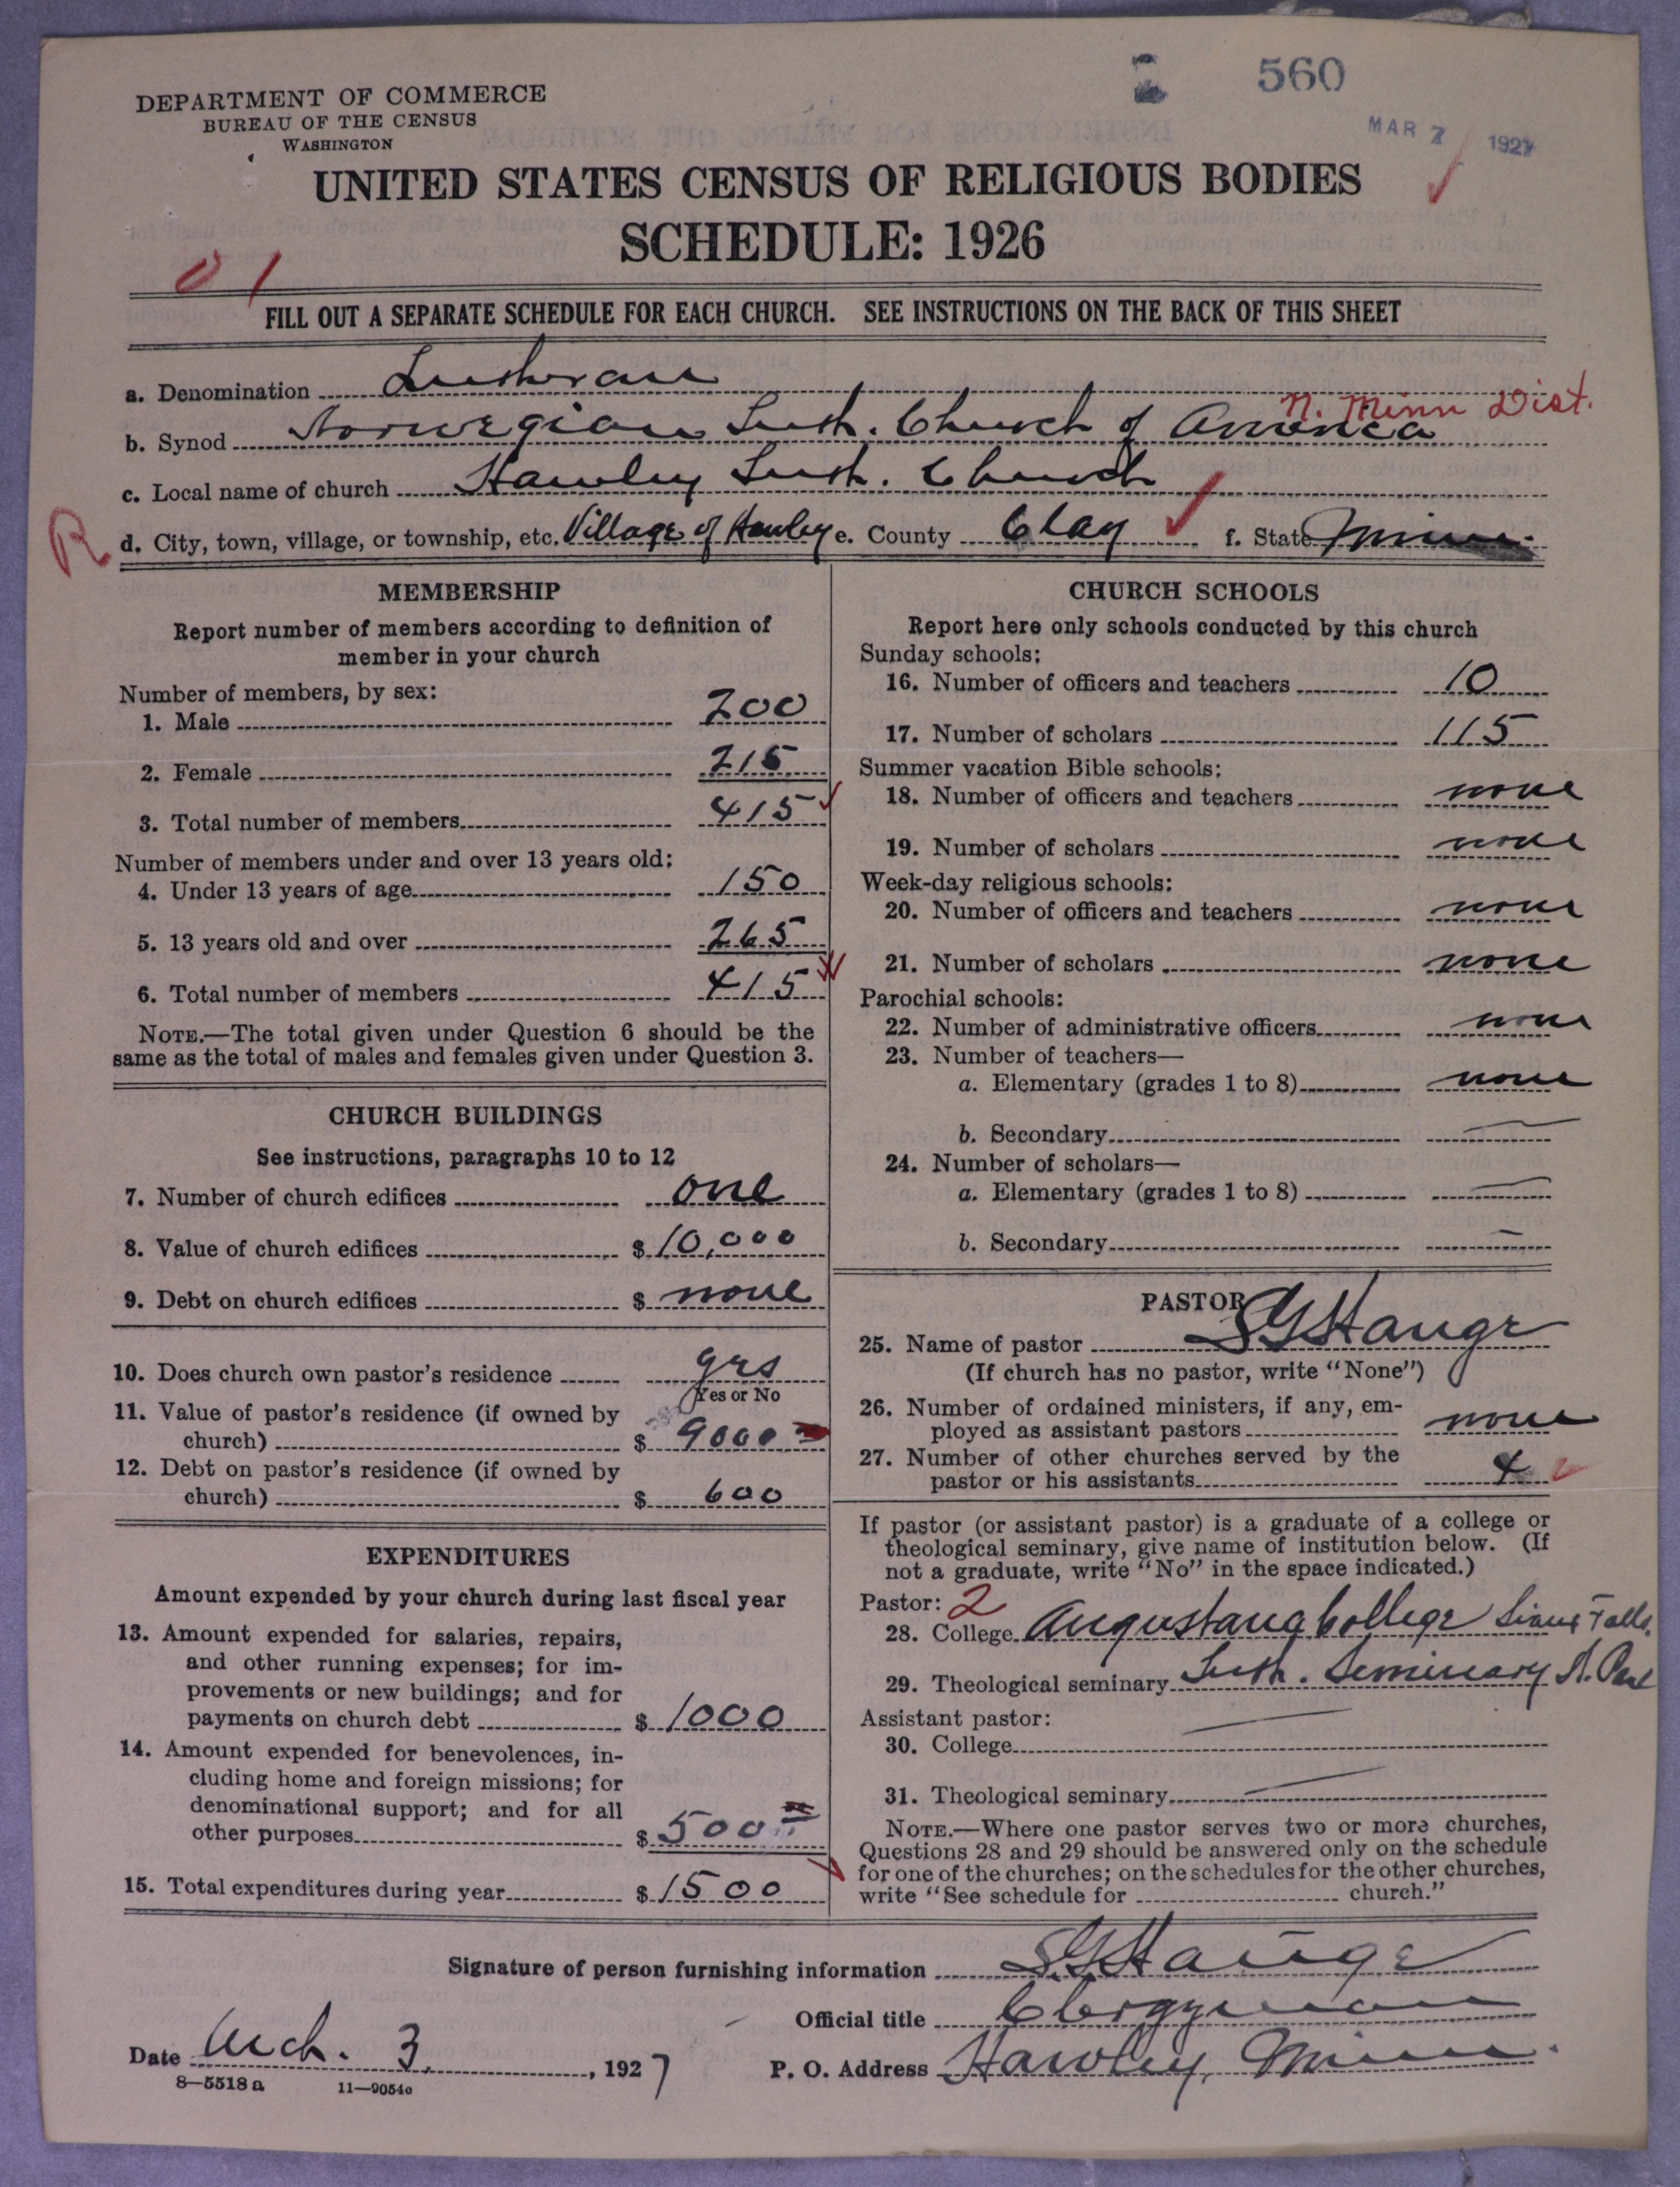 560
MAR 7 1927
DEPARTMENT OF COMMERCE
BUREAU OF THE CENSUS
WASHINGTON
UNITED STATES CENSUS OF RELIGIOUS BODIES
SCHEDULE: 1926
01
FILL OUT A SEPARATE SCHEDULE FOR EACH CHURCH. SEE INSTRUCTIONS ON THE BACK OF THIS SHEET
a. Denomination Lutheran
N. Minn Dist.
b. Synod Norwegian Luth. Church of America
c. Local name of church Hawley Luth. Church
R
d. City, town, village, or township, etc. Village of Hawley e. County Clay f. State Minn.
MEMBERSHIP
Report number of members according to definition of
member in your church
Number of members, by sex:
1. Male 200
2. Female 215
3. Total number of members 415
Number of members under and over 13 years old:
4. Under 13 years of age 150
5. 13 years old and over 265
6. Total number of members 415
NOTE.—The total given under Question 6 should be the
same as the total of males and females given under Question 3.
CHURCH BUILDINGS
See instructions, paragraphs 10 to 12
7. Number of church edifices one
8. Value of church edifices $10,000
9. Debt on church edifices $ none
10. Does church own pastor's residence yes
Yes or No
11. Value of pastor's residence (if owned by
church) $ 9000
12. Debt on pastor's residence (if owned by
church) $ 600
EXPENDITURES
Amount expended by your church during last fiscal year
13. Amount expended for salaries, repairs,
and other running expenses; for im-
provements or new buildings; and for
payments on church debt $ 1000
14. Amount expended for benevolences, in-
cluding home and foreign missions; for
denominational support; and for all
other purposes $ 500
15. Total expenditures during year $ 1500
CHURCH SCHOOLS
Report here only schools conducted by this church
Sunday schools:
16. Number of officers and teachers 10
17. Number of scholars 115
Summer vacation Bible schools:
18. Number of officers and teachers none
19. Number of scholars none
Week-day religious schools:
20. Number of officers and teachers none
21. Number of scholars none
Parochial schools:
22. Number of administrative officers none
23. Number of teachers—
a. Elementary (grades 1 to 8) none
b. Secondary —
24. Number of scholars—
a. Elementary (grades 1 to 8) —
b. Secondary —
PASTOR
25. Name of pastor S G Hauge
(If church has no pastor, write "None")
26. Number of ordained ministers, if any, em-
ployed as assistant pastors none
27. Number of other churches served by the
pastor or his assistants 4
If pastor (or assistant pastor) is a graduate of a college or
theological seminary, give name of institution below. (If
not a graduate, write "No" in the space indicated.)
Pastor: 2
28. College Augustana College Sioux Falls.
29. Theological seminary Luth. Seminary St. Paul
Assistant pastor:
30. College —
31. Theological seminary —
NOTE.—Where one pastor serves two or more churches,
Questions 28 and 29 should be answered only on the schedule
for one of the churches; on the schedules for the other churches,
write "See schedule for church."
Signature of person furnishing information S.G. Hauge
Official title Clergyman
Date Mch. 3, 1927 P. O. Address Hawley, Minn.
8—5518 a 11—9054c